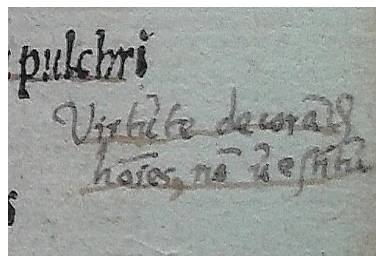 pulchri
Virtu̅te decora̅dj
ho̅i̅es, no̅ ue̅stitu̅
s